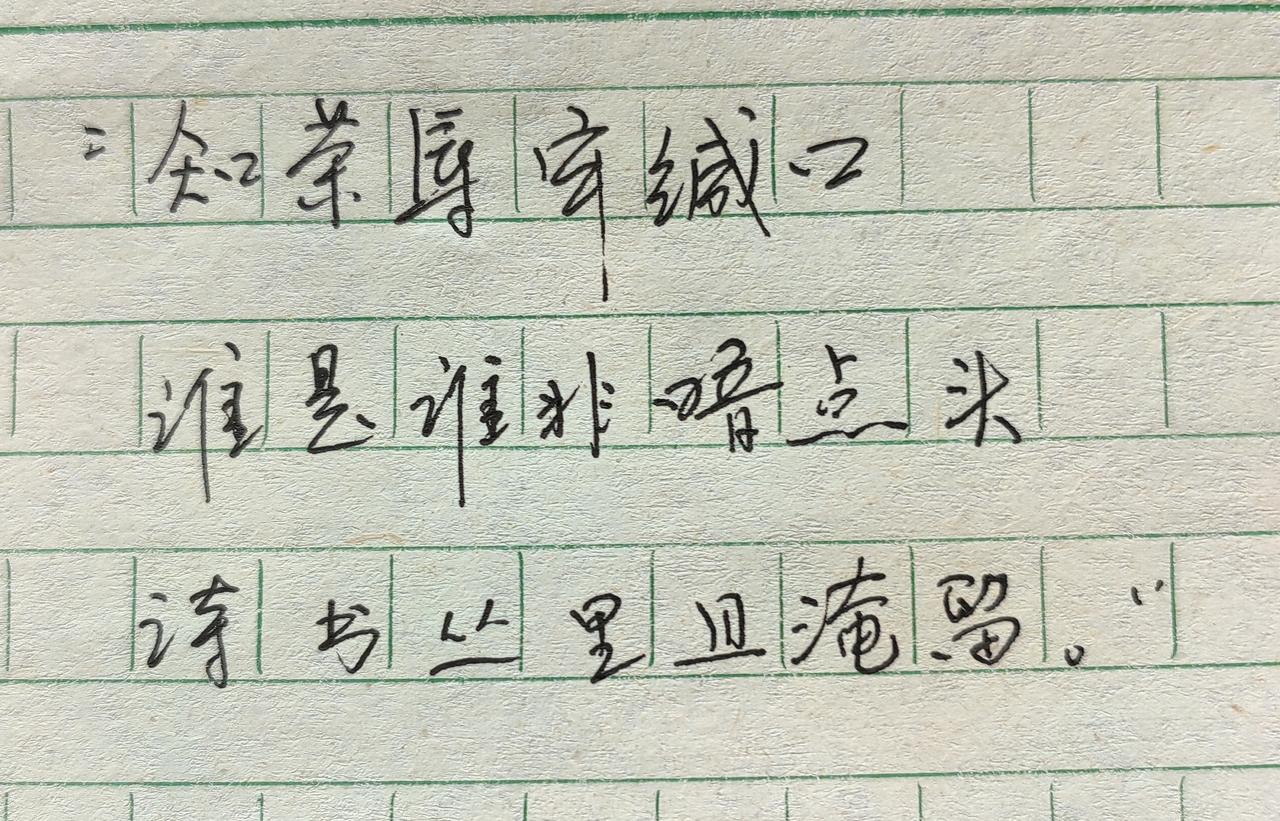 “知荣辱牢缄口
谁是谁非暗点头
诗书丛里且淹留。”